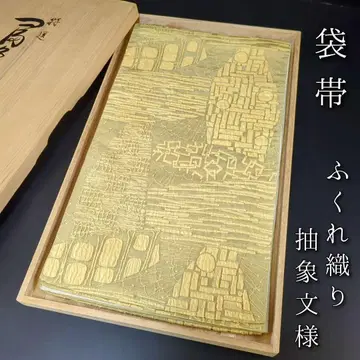 袋帯
ふくれ織り
抽象文様